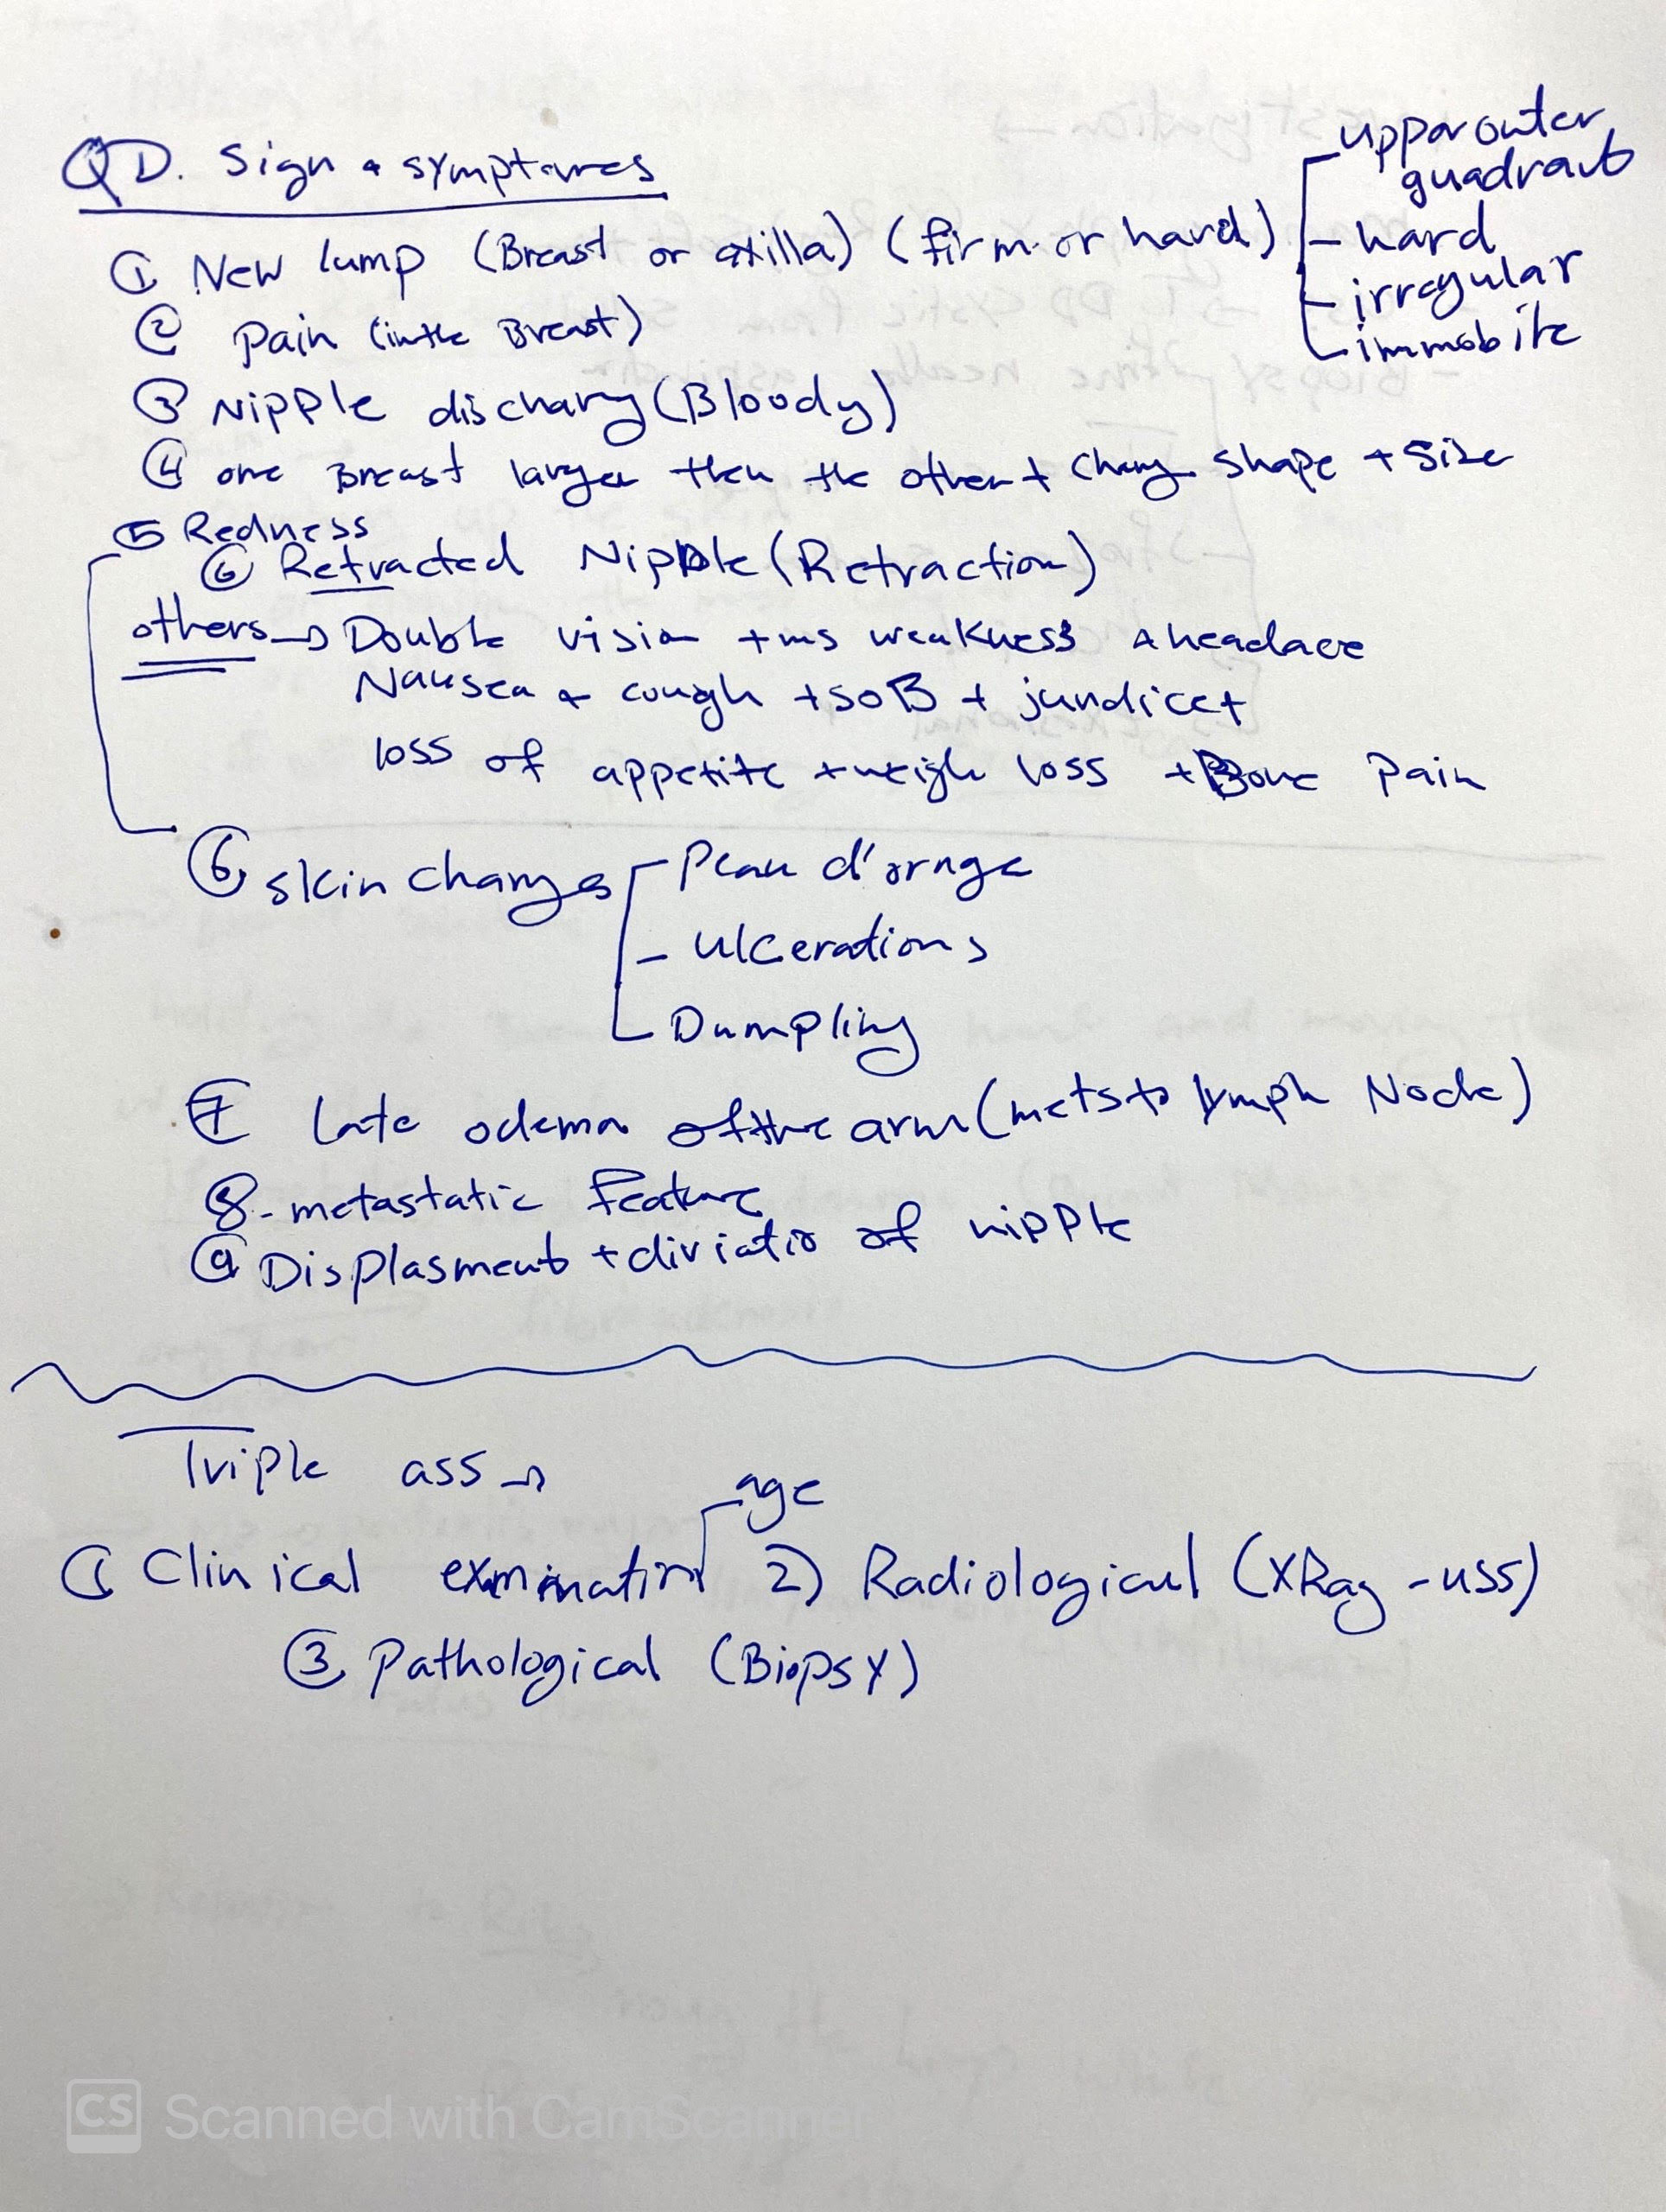 QD. Sign + symptomes
① New lump (Breast or axilla) (firm or hard)
upper outer
quadrant
- hard
- irregular
- immobile
② Pain (in the Breast)
③ Nipple discharg (Bloody)
④ one Breast larger then the other + chang shape + Size
⑤ Redness
⑥ Retracted Nipple (Retraction)
others → Double vision + ms weakness + headace
Nausea + cough + SOB + jundice +
loss of appetite + weigh loss + Bone Pain
⑥ skin changes
- Peau d'ornge
- Ulcerations
- Dumpling
⑦ Late odema of the arm (mets to lymph Node)
8 - metastatic Feature
⑨ Displasment + diviatio of nipple
Triple ass →
age
① Clinical exmination 2) Radiological (XRay - USS)
③ Pathological (Biopsy)
CS Scanned with CamScanner